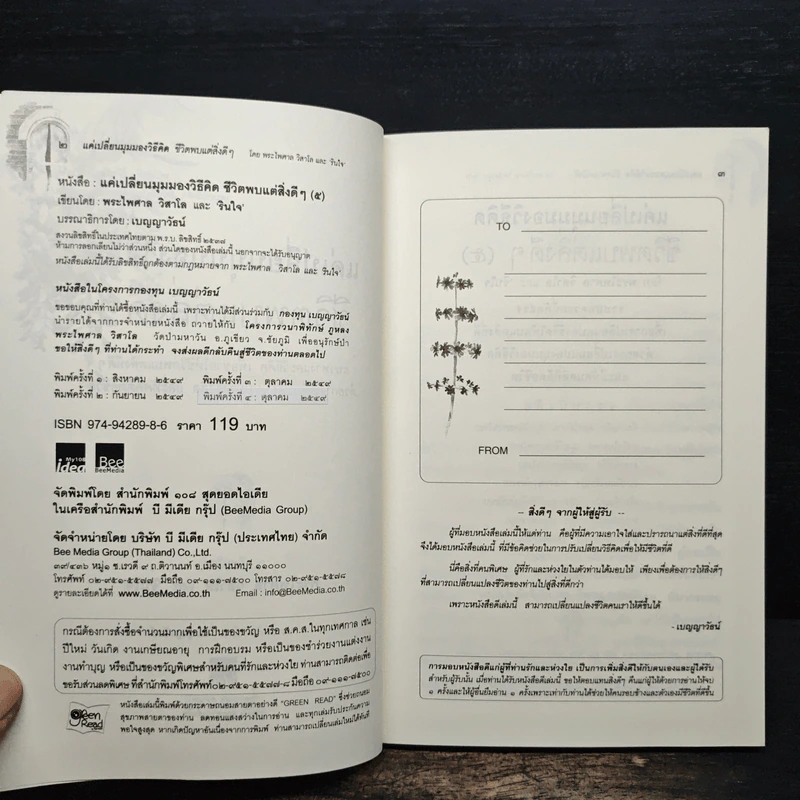 ๒ แค่เปลี่ยนมุมมองวิธีคิด ชีวิตพบแต่สิ่งดีๆ โดย พระไพศาล วิสาโล และ 'รินใจ'
หนังสือ : แค่เปลี่ยนมุมมองวิธีคิด ชีวิตพบแต่สิ่งดีๆ (๕)
เขียนโดย : พระไพศาล วิสาโล และ 'รินใจ'
บรรณาธิการโดย : เบญญาวัธน์
สงวนลิขสิทธิ์ในประเทศไทยตาม พ.ร.บ. ลิขสิทธิ์ ๒๕๓๗
ห้ามการลอกเลียนไม่ว่าส่วนหนึ่ง ส่วนใดของหนังสือเล่มนี้ นอกจากจะได้รับอนุญาต
หนังสือเล่มนี้ได้รับลิขสิทธิ์ถูกต้องตามกฎหมายจาก พระไพศาล วิสาโล และ รินใจ'
หนังสือในโครงการกองทุน เบญญาวัธน์
ขอขอบคุณที่ท่านได้ซื้อหนังสือเล่มนี้ เพราะท่านได้มีส่วนร่วมกับ กองทุน เบญญาวัธน์
นำรายได้จากการจำหน่ายหนังสือ ถวายให้กับ โครงการวนาพิทักษ์ ภูหลง
พระไพศาล วิสาโล วัดป่ามหาวัน อ.ภูเขียว จ.ชัยภูมิ เพื่ออนุรักษ์ป่า
ขอให้สิ่งดีๆ ที่ท่านได้กระทำ จงส่งผลดีกลับคืนสู่ชีวิตของท่านตลอดไป
พิมพ์ครั้งที่ ๑ : สิงหาคม ๒๕๔๙ พิมพ์ครั้งที่ ๓ : ตุลาคม ๒๕๔๙
พิมพ์ครั้งที่ ๒ : กันยายน ๒๕๔๙ พิมพ์ครั้งที่ ๔ : ตุลาคม ๒๕๔๙
ISBN 974-94289-8-6 ราคา 119 บาท
My108 idea Bee BeeMedia
จัดพิมพ์โดย สำนักพิมพ์ ๑๐๘ สุดยอดไอเดีย
ในเครือสำนักพิมพ์ บี มีเดีย กรุ๊ป (BeeMedia Group)
จัดจำหน่ายโดย บริษัท บี มีเดีย กรุ๊ป (ประเทศไทย) จำกัด
Bee Media Group (Thailand) Co.,Ltd.
๓๙/๔๓๖ หมู่๑ ซ.เรวดี ๙ ถ.ติวานนท์ อ.เมือง นนทบุรี ๑๑๐๐๐
โทรศัพท์ ๐๒-๙๕๑-๕๕๗๗-๘ มือถือ ๐๙-๑๑๑-๗๕๐๐ โทรสาร ๐๒-๙๕๑-๕๕๗๘
ดูรายละเอียดได้ที่ www.BeeMedia.co.th Email : info@BeeMedia.co.th
กรณีต้องการสั่งซื้อจำนวนมากเพื่อใช้เป็นของขวัญ หรือ ส.ค.ส.ในทุกเทศกาล เช่น
ปีใหม่ วันเกิด งานเกษียณอายุ การฝึกอบรม หรือเป็นของชำร่วยงานแต่งงาน
งานทำบุญ หรือเป็นของขวัญพิเศษสำหรับคนที่รักและห่วงใย ท่านสามารถติดต่อเพื่อ
ขอรับส่วนลดพิเศษ ที่สำนักพิมพ์โทรศัพท์๐๒-๙๕๑-๕๕๗๗-๘ มือถือ ๐๙-๑๑๑-๗๕๐๐
Green Read
หนังสือเล่มนี้พิมพ์ด้วยกระดาษถนอมสายตาอย่างดี "GREEN READ" ซึ่งช่วยถนอม
สุขภาพสายตาของท่าน ลดทอนแสงสว่างในการอ่าน และทุกเล่มรับประกันความ
พอใจสูงสุด หากเกิดปัญหาอันเนื่องจากการพิมพ์ ท่านสามารถเปลี่ยนเล่มใหม่ได้ทันที
๓
TO
FROM
-- สิ่งดีๆ จากผู้ให้สู่ผู้รับ --
ผู้ที่มอบหนังสือเล่มนี้ให้แด่ท่าน คือผู้ที่มีความเอาใจใส่และปรารถนาแต่สิ่งที่ดีที่สุด
จึงได้มอบหนังสือเล่มนี้ ที่มีข้อคิดช่วยในการปรับเปลี่ยนวิธีคิดเพื่อให้มีชีวิตที่ดี
นี่คือสิ่งที่คนพิเศษ ผู้ที่รักและห่วงใยในตัวท่านได้มอบให้ เพียงเพื่อต้องการให้สิ่งดีๆ
ที่สามารถเปลี่ยนแปลงชีวิตของท่านไปสู่สิ่งที่ดีกว่า
เพราะหนังสือดีเล่มนี้ สามารถเปลี่ยนแปลงชีวิตคนเราให้ดีขึ้นได้
- เบญญาวัธน์
การมอบหนังสือดีแก่ผู้ที่ท่านรักและห่วงใย เป็นการเพิ่มสิ่งดีให้กับตนเองและผู้ได้รับ
สำหรับผู้รับนั้น เมื่อท่านได้รับหนังสือเล่มนี้ ขอให้ตอบแทนสิ่งดีๆ คืนแก่ผู้ให้ด้วยการอ่านให้จบ
๑ ครั้งและให้ผู้อื่นยืมอ่าน ๑ ครั้งเพราะเท่ากับท่านได้ช่วยให้คนรอบข้างและตัวเองมีชีวิตที่ดีขึ้น